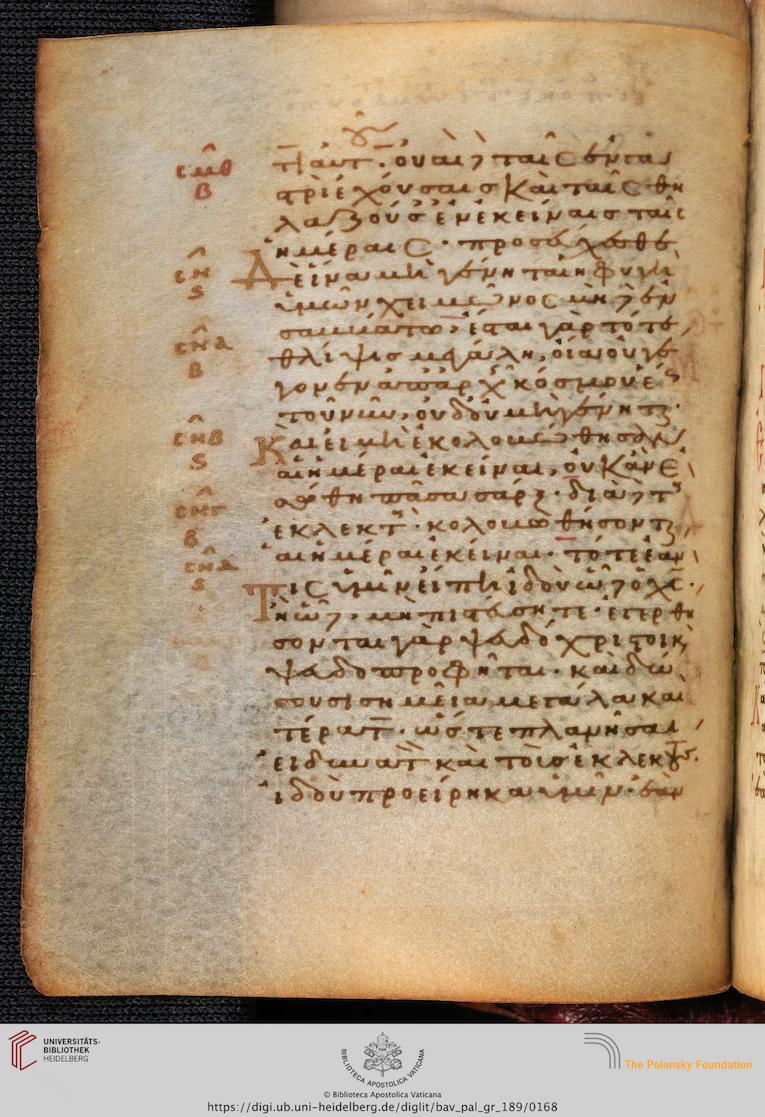 τὰ ἱμάτ αὐτ̅. οὐαὶ δὲ ταῖς ἐν γα
στρὶ ἐχούσαις καὶ ταῖς θη
λαζούσ ἐν ἐκείναις ταῖς
ἡμέραις. προσεύχεσθε
δὲ ἵνα μὴ γένηται ἡ φυγὴ
ὑμῶν χειμῶνος μὴ δὲ ἐν
σαββάτω, ἔσται γὰρ τότε
θλίψις μεγάλη, οἵα οὐ γέ
γονεν ἀπ ἀρχ κόσμου ἕως
τοῦ νῦν, οὐδ οὐ μὴ γένηται.
σμθ
β
σν
ς
σνα
β
Καὶ εἰ μὴ ἐκολοβώθησαν
αἱ ἡμέραι ἐκεῖναι, οὐκ ἂν ἐ
σώθη πᾶσα σάρξ. διὰ δὲ τοὺς
ἐκλεκτ. κολοβωθήσονται
αἱ ἡμέραι ἐκεῖναι. τότε ἐάν
τις ὑμῖν εἴπῃ ἰδοὺ ὧδε ὁ χς̅.
ἢ ὧδε, μὴ πιστεύσητε. ἐγερθή
σονται γὰρ ψευδόχριστοι κ
ψευδοπροφῆται. καὶ δώ
σουσι σημεῖα μεγάλα καὶ
τέρατ. ὥστε πλανῆσαι
εἰ δυνατ καὶ τοὺς ἐκλεκτούς.
ἰδοὺ προείρηκα ὑμῖν. ἐὰν
σνβ
ς
σνγ
β
σνδ
ς
UNIVERSITÄTS-
BIBLIOTHEK
HEIDELBERG
BIBLIOTECA APOSTOLICA VATICANA
The Polonsky Foundation
© Biblioteca Apostolica Vaticana
https://digi.ub.uni-heidelberg.de/diglit/bav_pal_gr_189/0168